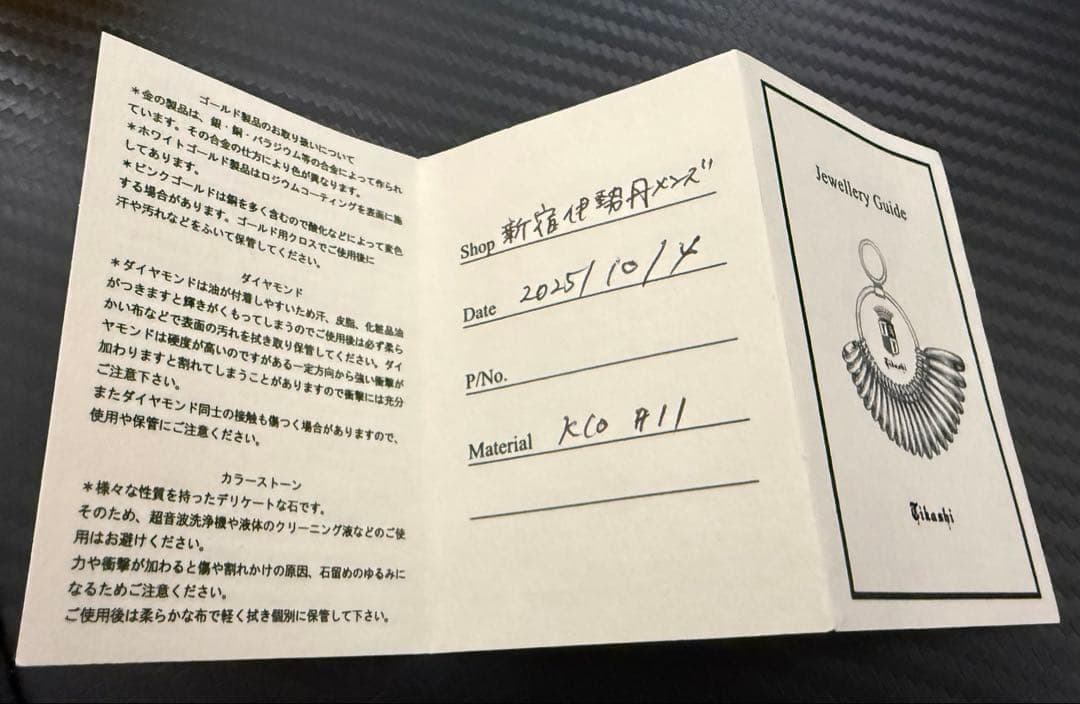 ゴールド製品のお取り扱いについて
＊金の製品は、銀・銅・パラジウム等の合金によって作られ
ています。その合金の仕方により色が異なります。
＊ホワイトゴールド製品はロジウムコーティングを表面に施
してあります。
＊ピンクゴールドは銅を多く含むので酸化などによって変色
する場合があります。ゴールド用クロスでご使用後に
汗や汚れなどをふいて保管してください。
ダイヤモンド
＊ダイヤモンドは油が付着しやすいため汗、皮脂、化粧品油
がつきますと輝きがくもってしまうのでご使用後は必ず柔ら
かい布などで表面の汚れを拭き取り保管してください。ダイ
ヤモンドは硬度が高いのですがある一定方向から強い衝撃が
加わりますと割れてしまうことがありますので衝撃には充分
ご注意下さい。
またダイヤモンド同士の接触も傷つく場合がありますので、
使用や保管にご注意ください。
カラーストーン
＊様々な性質を持ったデリケートな石です。
そのため、超音波洗浄機や液体のクリーニング液などのご使
用はお避けください。
力や衝撃が加わると傷や割れかけの原因、石留めのゆるみに
なるためご注意ください。
ご使用後は柔らかな布で軽く拭き個別に保管して下さい。
Shop 新宿伊勢丹メンズ
Date 2025/10/4
P/No.
Material K10 #11
Jewellery Guide
Tikashi
Tikashi